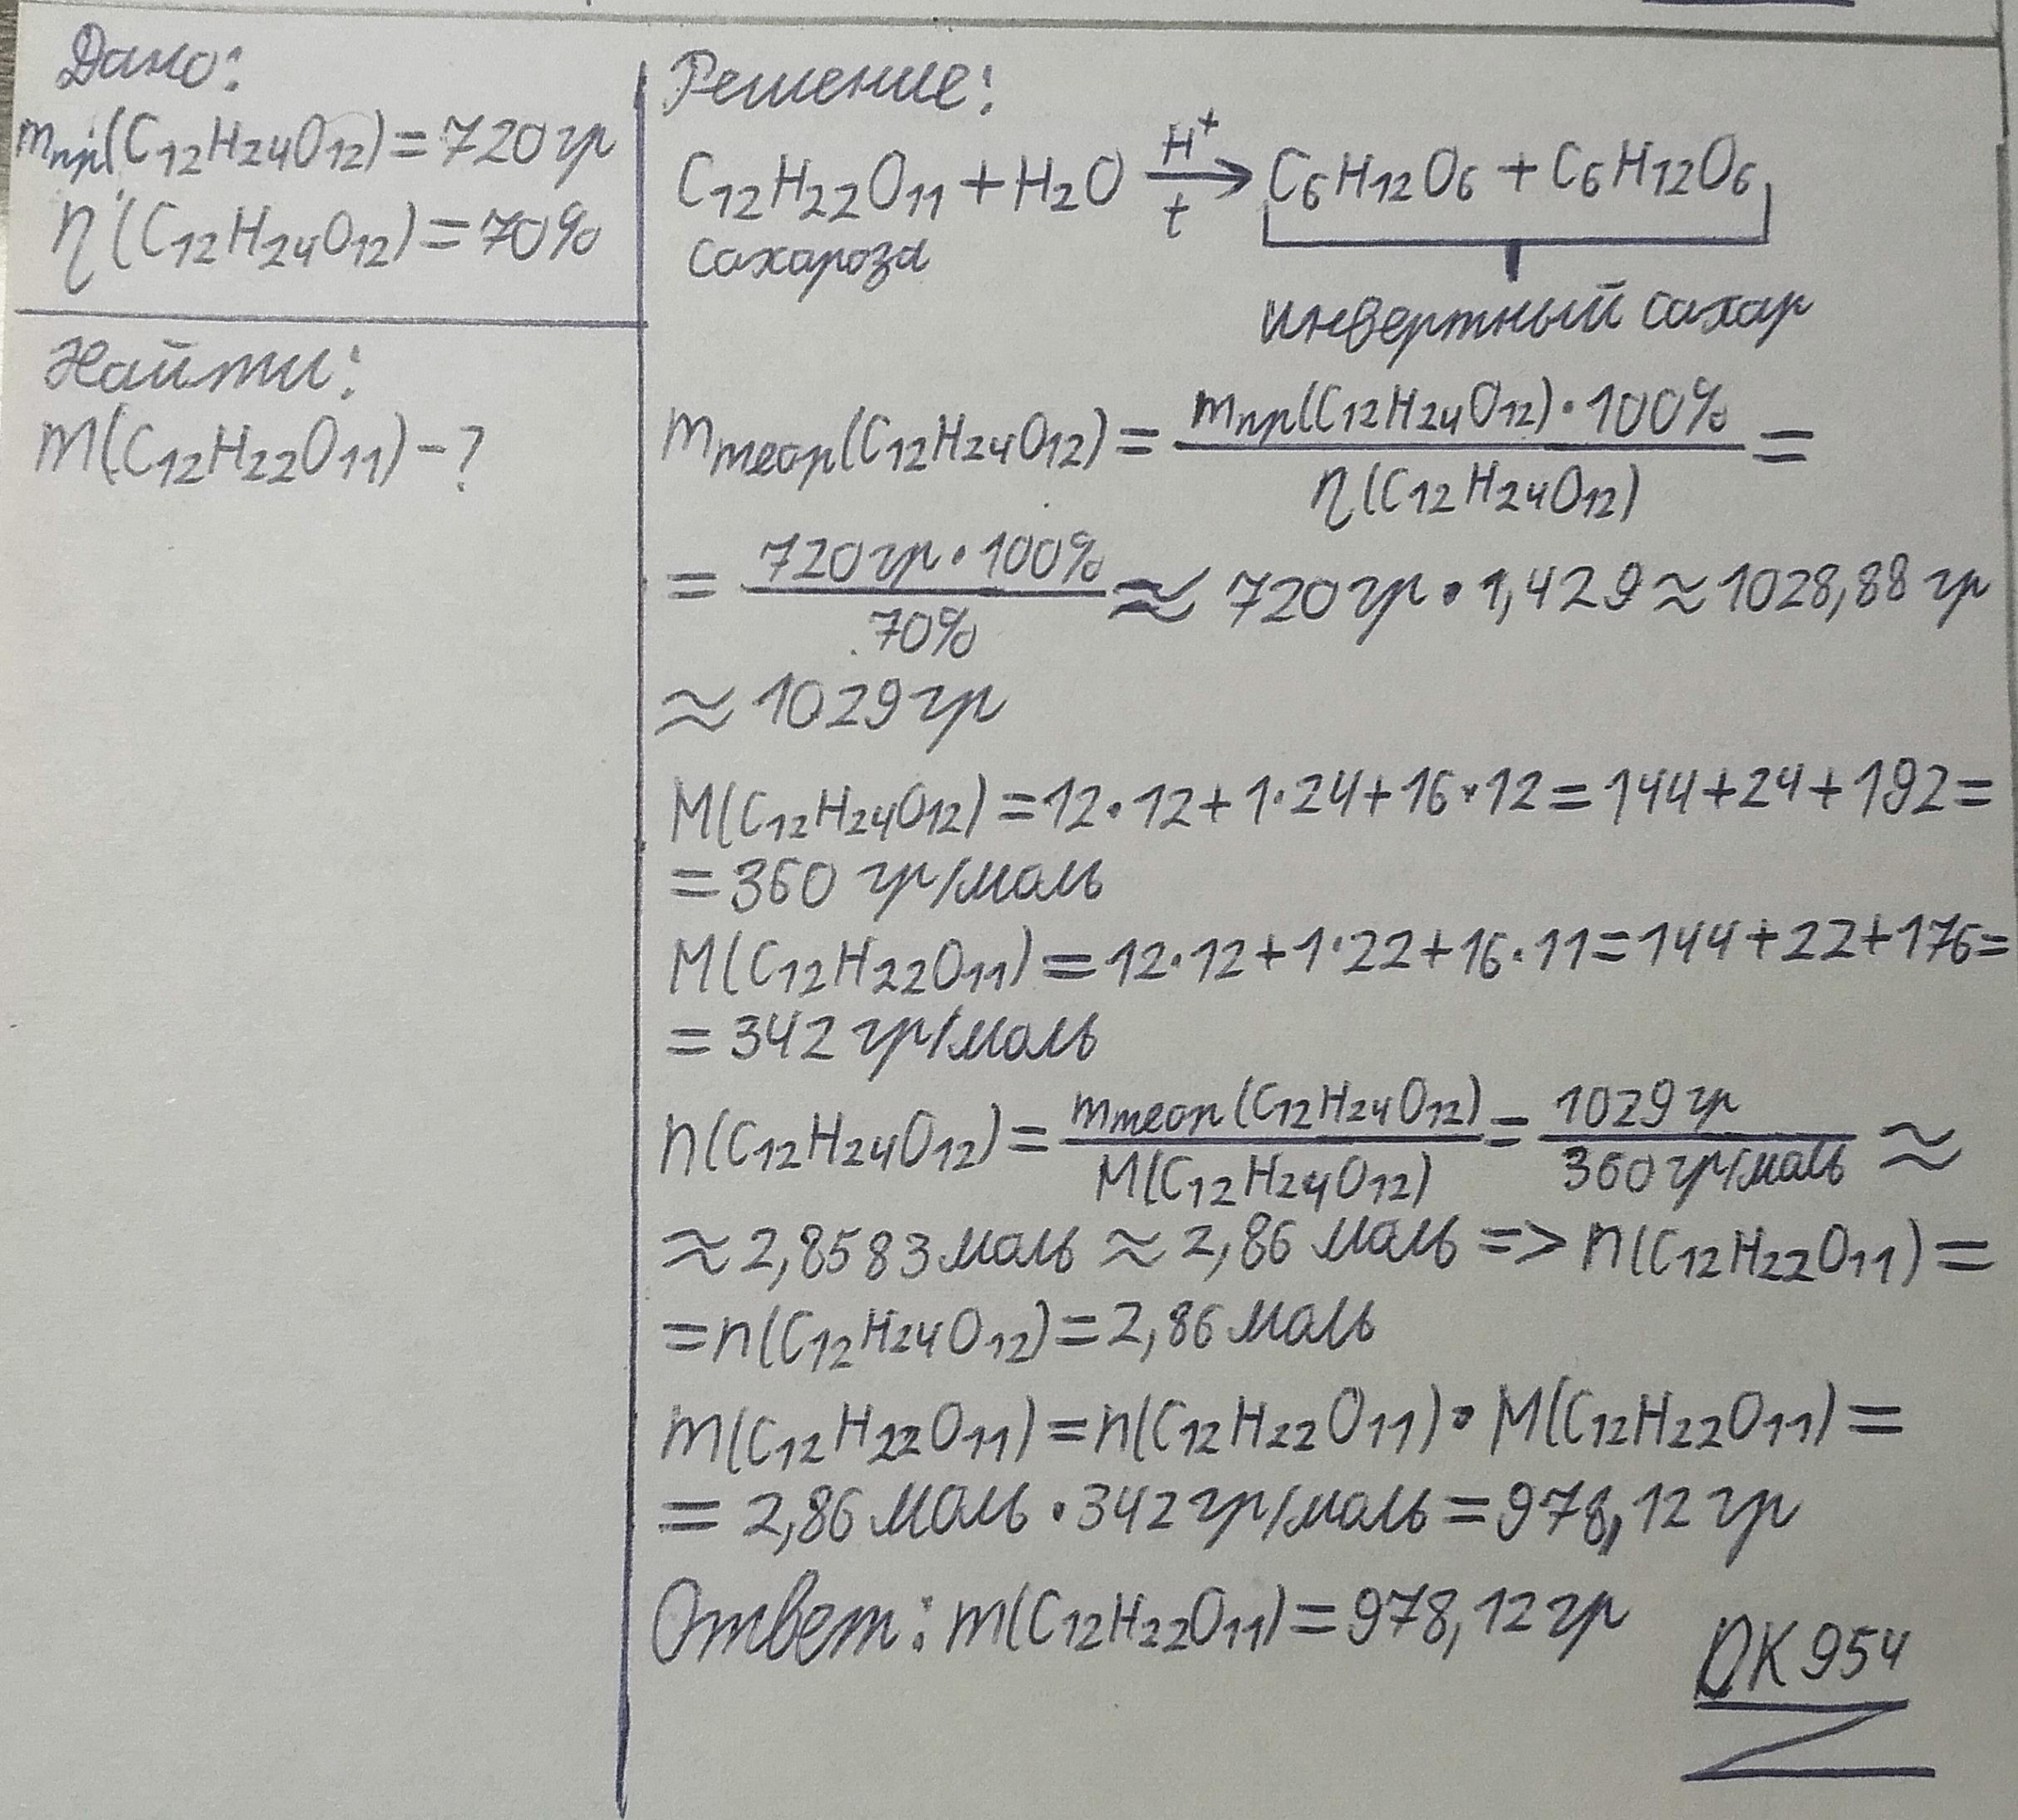 Дано:
mпр(C12H24O12)=720гр
η(C12H24O12)=70%
Найти:
m(C12H22O11)-?
Решение:
C12H22O11+H2O H+ t → C6H12O6+C6H12O6
сахароза
инвертный сахар
mтеор(C12H24O12)= mпр(C12H24O12)•100% / η(C12H24O12) =
= 720гр•100% / 70% ≈ 720гр•1,429≈1028,88гр
≈1029гр
M(C12H24O12)=12•12+1•24+16•12=144+24+192=
=360 гр/моль
M(C12H22O11)=12•12+1•22+16•11=144+22+176=
=342 гр/моль
n(C12H24O12)= mтеор(C12H24O12) / M(C12H24O12) = 1029гр / 360гр/моль ≈
≈2,8583моль≈2,86моль=>n(C12H22O11)=
=n(C12H24O12)=2,86моль
m(C12H22O11)=n(C12H22O11)•M(C12H22O11)=
=2,86моль•342гр/моль=978,12гр
Ответ: m(C12H22O11)=978,12гр
DK954